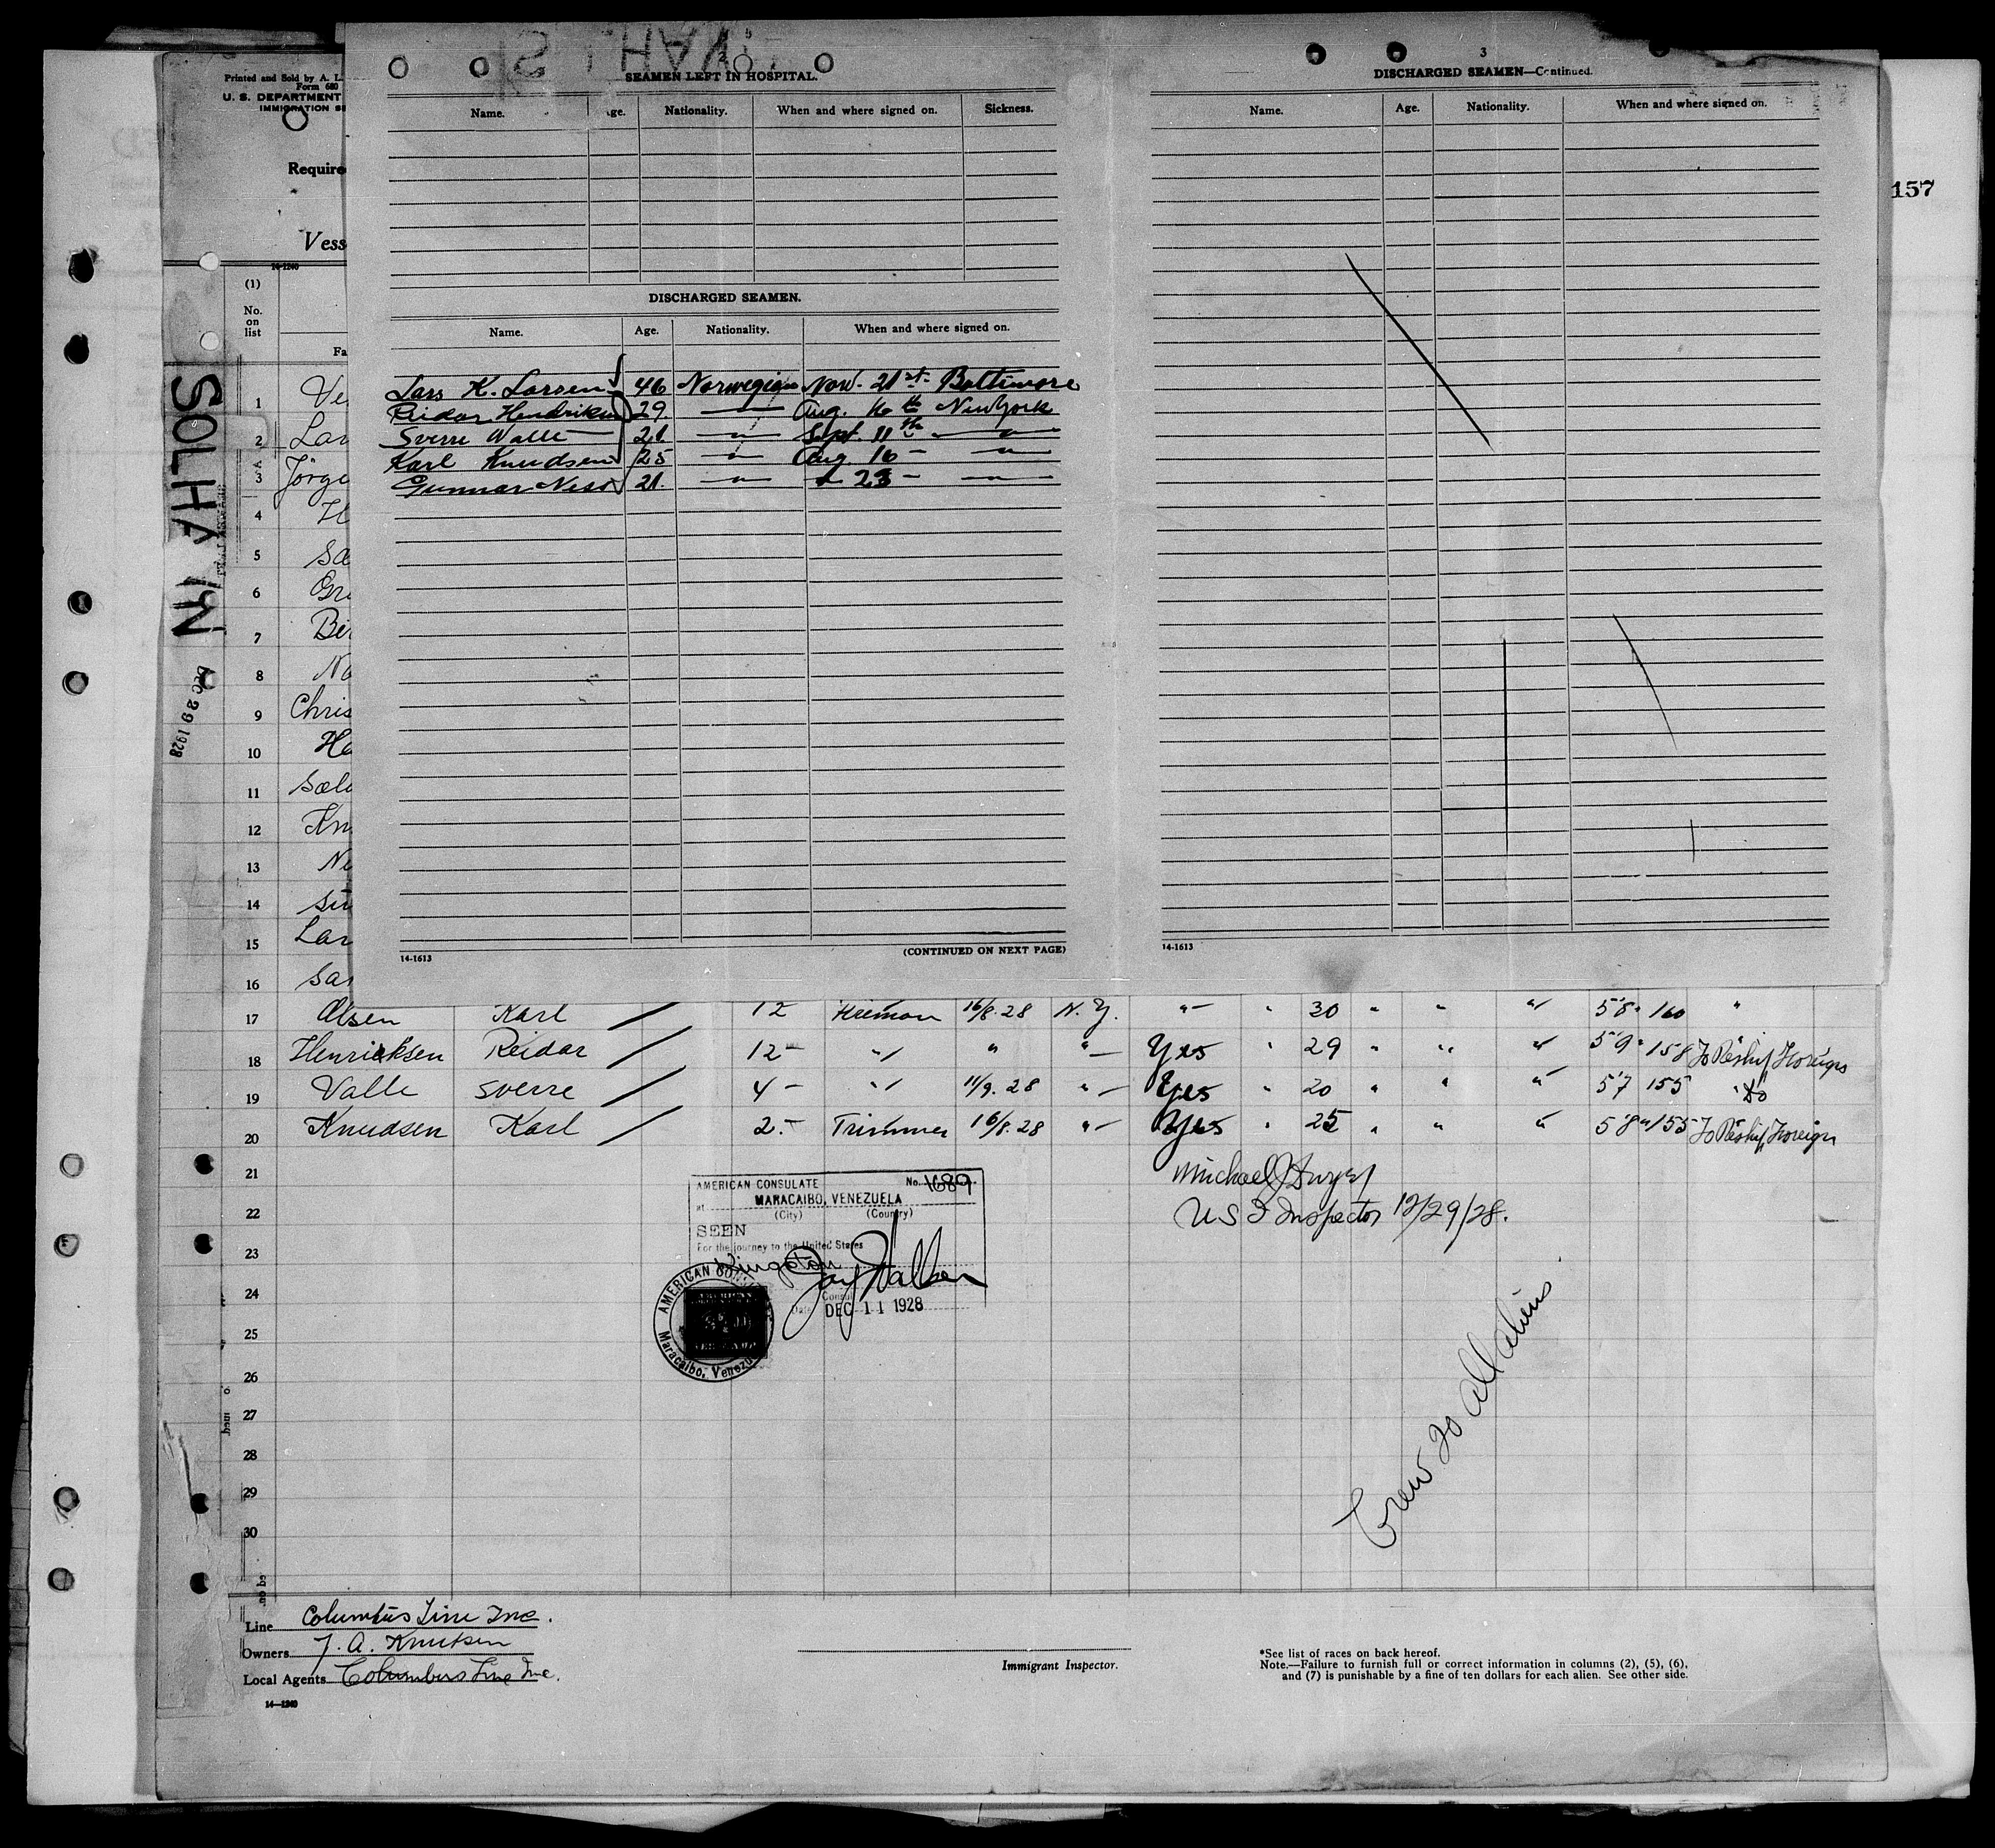 157
Printed and Sold by A. L.
Form 680
U. S. DEPARTMENT
IMMIGRATION SE
Require
Vess
14-1240
(1)
No.
on
list
Fa
SOLHAVN
DEC 29 1928
2
SEAMEN LEFT IN HOSPITAL.
Name. ge. Nationality. When and where signed on. Sickness.
DISCHARGED SEAMEN.
Name. Age. Nationality. When and where signed on.
Lars K. Larsen 46 Norwegian Nov. 21st Baltimore
Reidar Hendriksen 29 — " — Aug. 16th New York
Sverre Walle 21 — " — Sept. 11th — " —
Karl Knudsen 25 — " — Aug. 16 — — " —
Gunnar Ness 21. — " — " 23 — — " —
(CONTINUED ON NEXT PAGE)
14-1613
3
DISCHARGED SEAMEN—Continued.
Name. Age. Nationality. When and where signed on.
14-1613
1 Ve
2 Lar
3 Jörge
4 H
5 Sæ
6 Gr
7 Ber
8 No
9 Chris
10 Ha
11 Sælo
12 Kn
13 Ne
14 Su
15 Lar
16 Sa
17 Olsen Karl / 12 Fireman 16/8.28 N.Y. " " 30 " " " 5'8" 160 "
18 Henriksen Reidar / 12 — " " " — Yes " 29 " " " 5'9" 158 To Reship Foreign
19 Valle Sverre / 4 — " 11/9.28 " — Yes " 20 " " " 5'7 155 " Do
20 Knudsen Karl / 2. — Trimmer 16/8.28 " — Yes " 25 " " " 5'8" 155 To Reship Foreign
21
22
23
24
25
26
27
28
29
30
AMERICAN CONSULATE No. 1689
at MARACAIBO, VENEZUELA
(City) (Country)
SEEN
For the journey to the United States
Kingston
Consul
Date DEC 11 1928
AMERICAN CONSU
Maracaibo, Venezu
Michael J Dwyer
U S I Inspector 12/29/28.
Crew 20 all aliens
Line Columbus Line Inc.
Owners J. A. Knutsen
Local Agents Columbus Line Inc.
14—1240
Immigrant Inspector.
*See list of races on back hereof.
Note.—Failure to furnish full or correct information in columns (2), (5), (6),
and (7) is punishable by a fine of ten dollars for each alien. See other side.